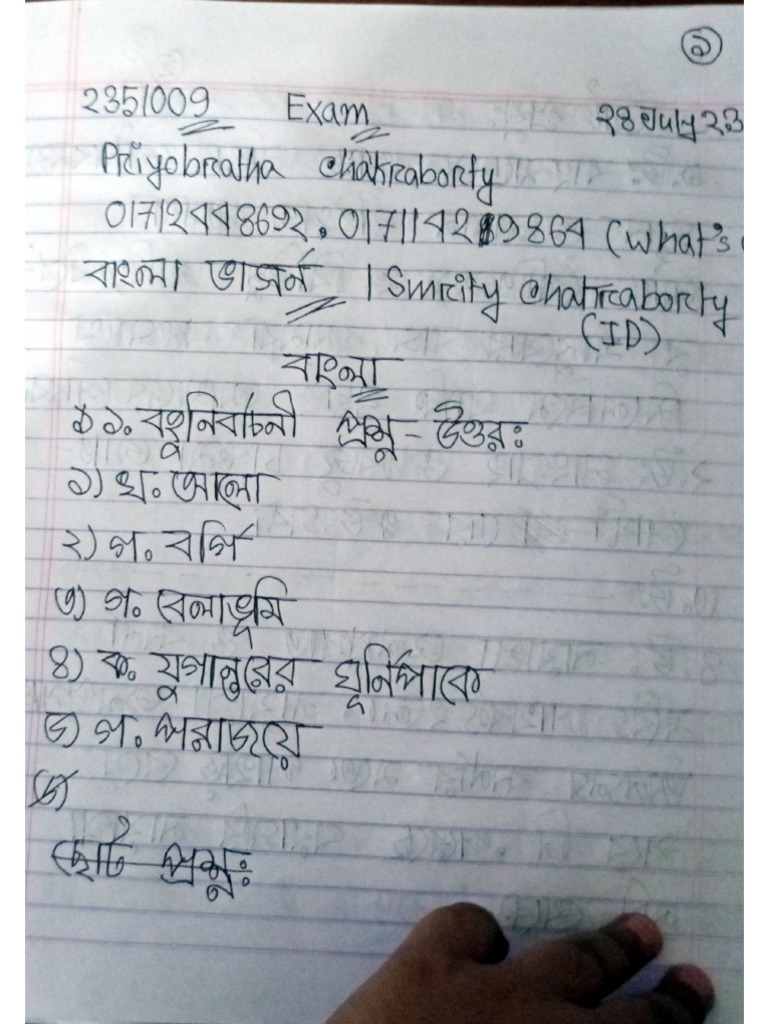 ১
2351009 Exam ২৪ July 23
Priyobratha Chakraborty
01712448692. 01711429864 (What's
বাংলা ভার্সন | Smrity Chakraborty
(ID)
বাংলা
১. বহুনির্বাচনী প্রশ্ন - উত্তর:
১) খ. আলো
২) গ. বর্গি
৩) গ. বেলাভূমি
৪) ক. যুগান্তরের ঘূর্নিপাকে
৫) গ. পরাজয়ে
ছোট প্রশ্ন: